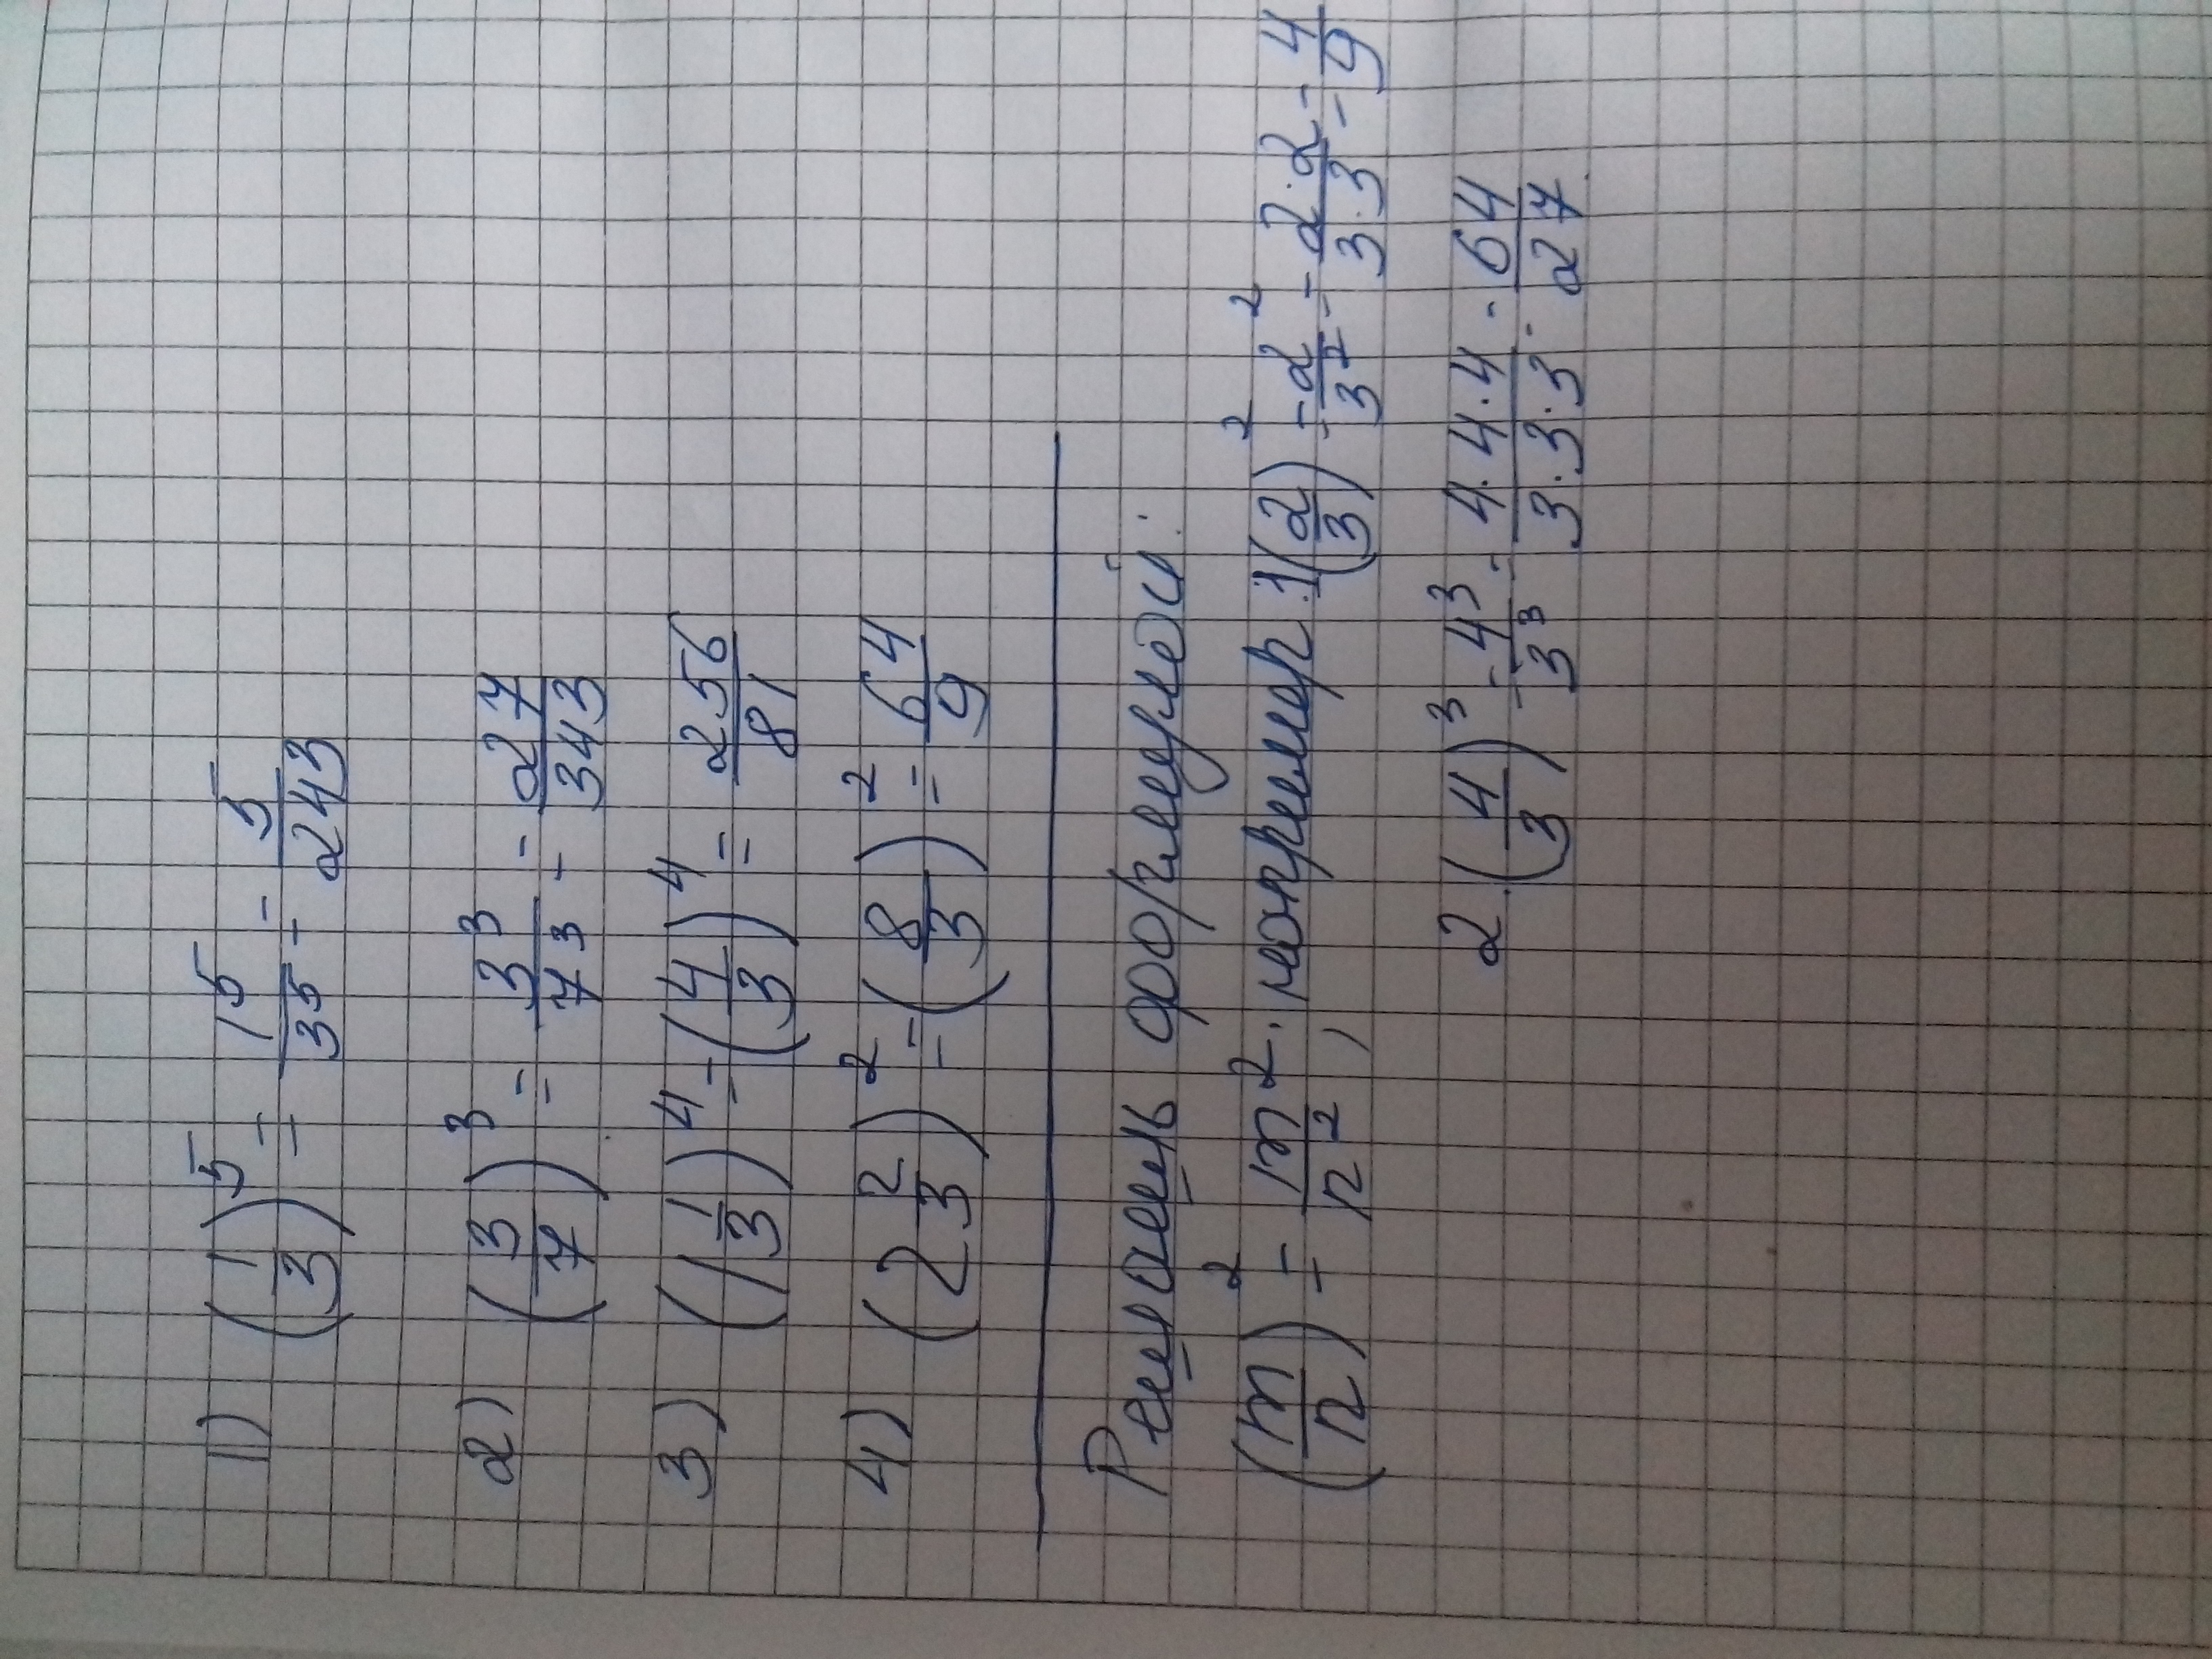 1) (1/3)^5 = 1^5/3^5 = 5/243
2) (3/7)^3 = 3^3/7^3 = 27/343
3) (1 1/3)^4 = (4/3)^4 = 256/81
4) (2 2/3)^2 = (8/3)^2 = 64/9
Решаешь формулой:
(m/n)^2 = m^2/n^2, например 1(2/3)^2 = 2^2/3^2 = 2·2/3·3 = 4/9
2.(4/3)^3 = 4^3/3^3 = 4·4·4/3·3·3 = 64/27